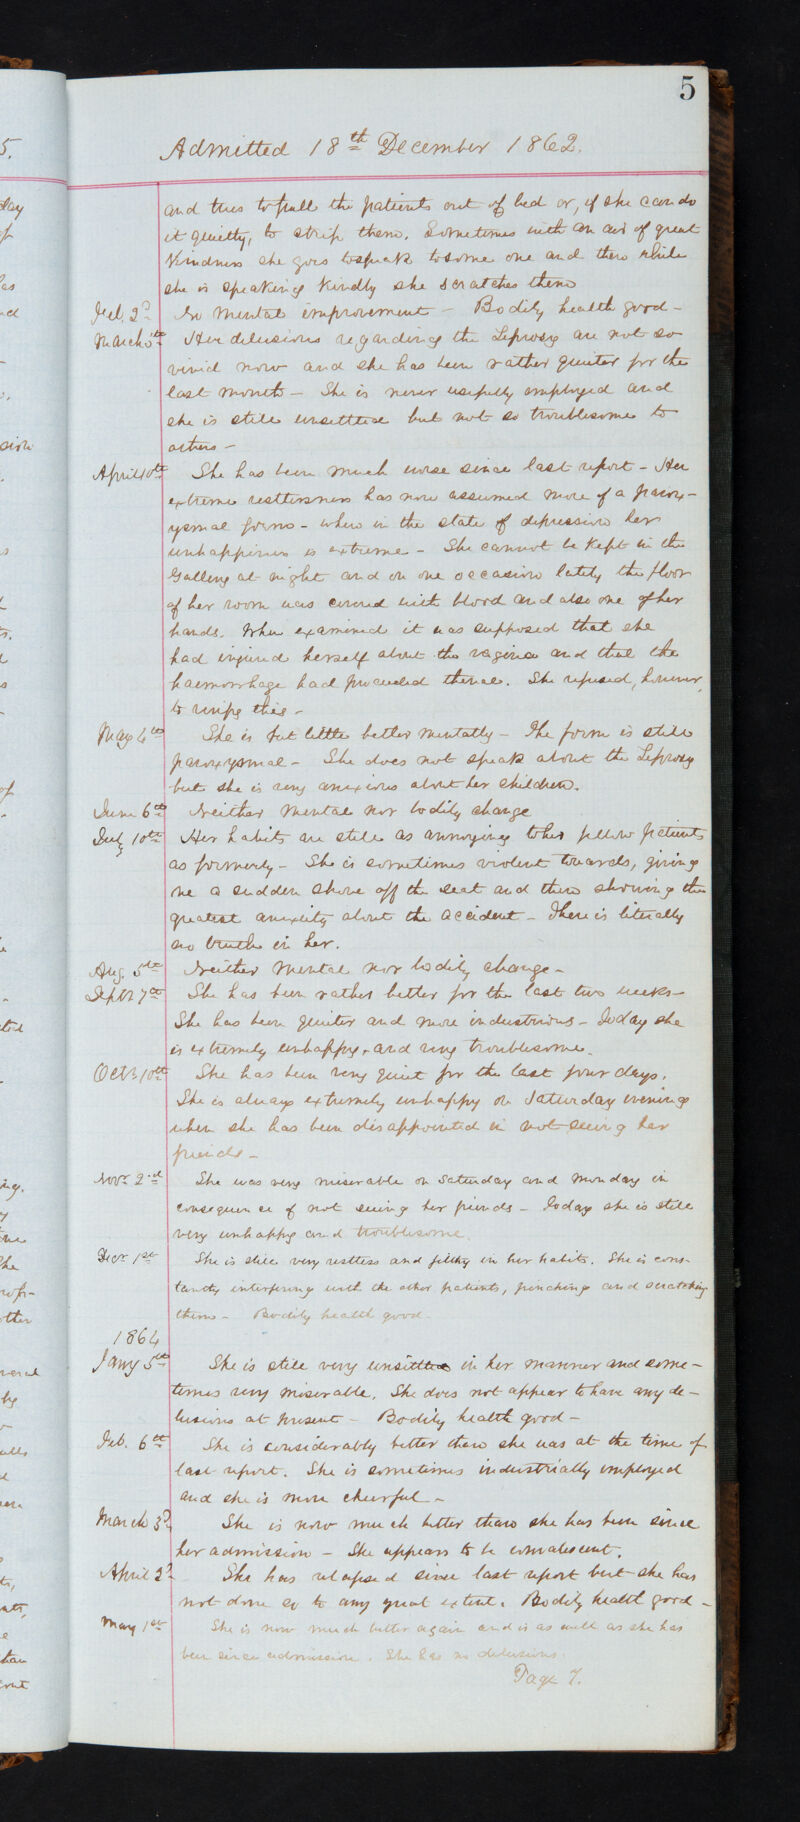 5
Admitted 18th December 1862.
and tries to pull the patients out of bed or, if she can do
it quietly, to strip them. Sometimes with an air of great
kindness she goes to speak to some one and then while
she is speaking kindly she scratches them
Feb. 2d No mental improvement - Bodily health good -
March 5th Her delusions regarding the Leprosy are not so
vivid now and she has been rather quieter for the
last month - She is never usefully employed and
she is still unsettled but not so troublesome to
others -
April 10th She has been much worse since last report - Her
extreme restlessness has now assumed more of a parox-
ysmal form - when in the state of depression her
unhappiness is extreme - She cannot be kept in the
Gallery at night and on one occasion lately the floor
of her room was covered with blood and also one of her
hands. When examined it was supposed that she
had injured herself about the vagina and that the
haemorrhage had proceeded thence. She refused, however,
to this -
May 4th She is but little better mentally - The form is still
paroxysmal - She does not speak about the Leprosy
but she is very anxious about her children.
June 6th Neither mental nor bodily change
July 10th Her habits are still as annoying to her fellow patients
as formerly - She is sometimes violent towards, giving
me a sudden shove off the seat and then showing the
greatest anxiety about the accident - There is literally
no truth in her.
Aug. 5th Neither mental nor bodily change -
Septr 7th She has been rather better for the last two weeks -
She has been quieter and more industrious - Today she
is extremely unhappy and very troublesome.
Octr 10th She has been very quiet for the last four days.
She is always extremely unhappy on Saturday evening
when she has been disappointed in not seeing her
friends -
Novr 2nd She was very miserable on Saturday and Monday in
consequence of not seeing her friends - Today she is still
very unhappy and troublesome.
Decr 1st She is still very restless and filthy in her habits. She is cons-
tantly interfering with the other patients, pinching and scratching
them - Bodily health good.
1864
Jany 5th She is still very unsettled in her manner and some-
times very miserable. She does not appear to have any de-
lusions at present - Bodily health good -
Feb. 6th She is considerably better than she was at the time of
last report. She is sometimes industrially employed
and she is more cheerful -
March 3d She is now much better than she has been since
her admission - She appears to be convalescent.
April 2d She has relapsed since last report but she has
not done so to any great extent. Bodily health good -
May 1st She is now much better again and is as well as she has
been since admission. She has no delusions.
Page 7.